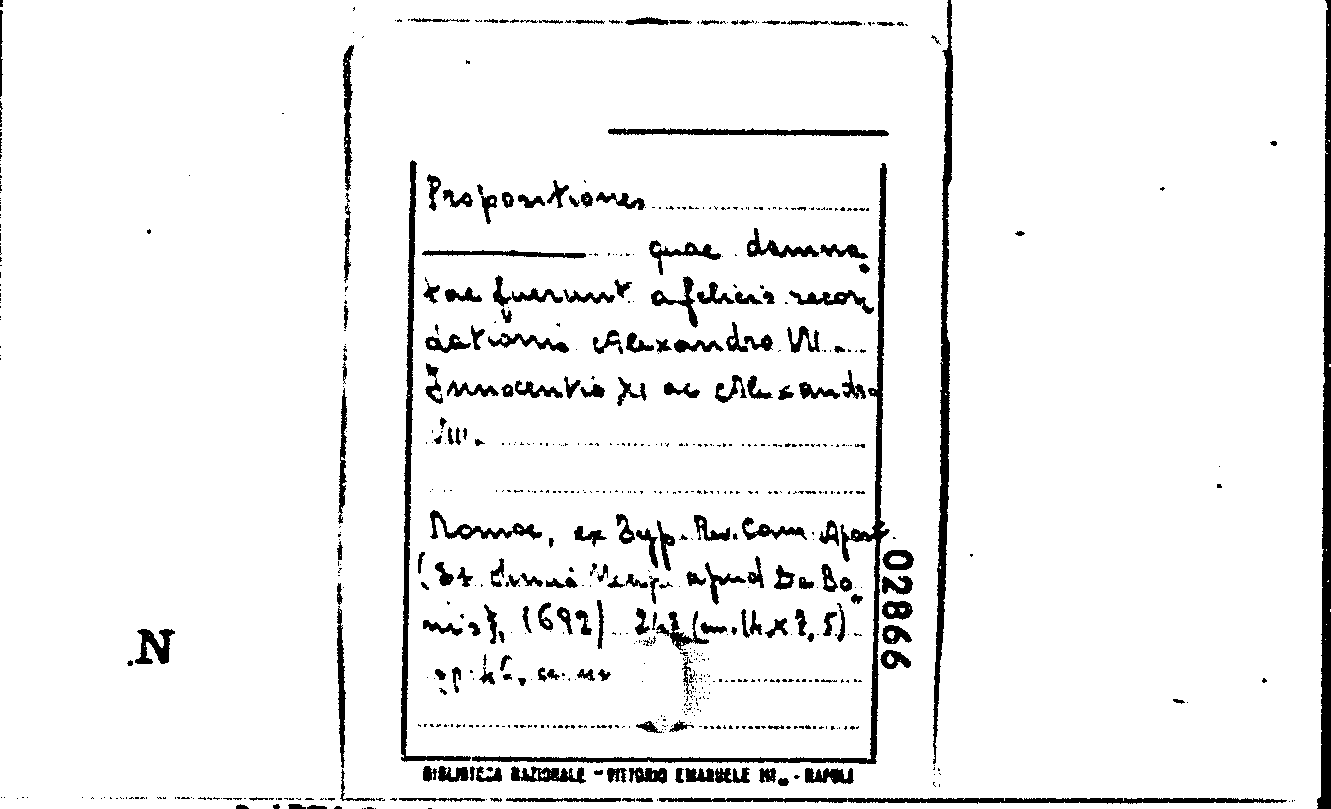 Propositiones
quae damna
tae fuerunt a felicis recor
dationis Alexandro VII.
Innocentio XI ac Alexandro
VIII.
Romae, ex Typ. Rev. Cam. Apost.
(Et Neap. apud De Bo
nis), (692) (cm. 14 x 7,5)
02866
.N
BIBLIOTECA NAZIONALE - VITTORIO EMANUELE III - NAPOLI